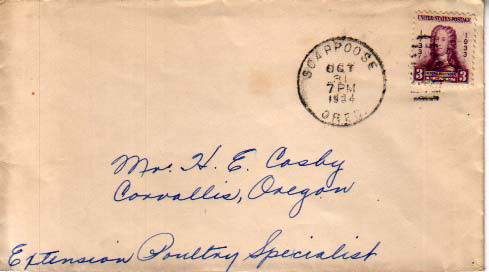 UNITED STATES POSTAGE
1733
1933
3 3
SCAPPOOSE
OCT
31
7 PM
1934
OREG.
Mr. H. E. Cosby
Corvallis, Oregon
Extension Poultry Specialist